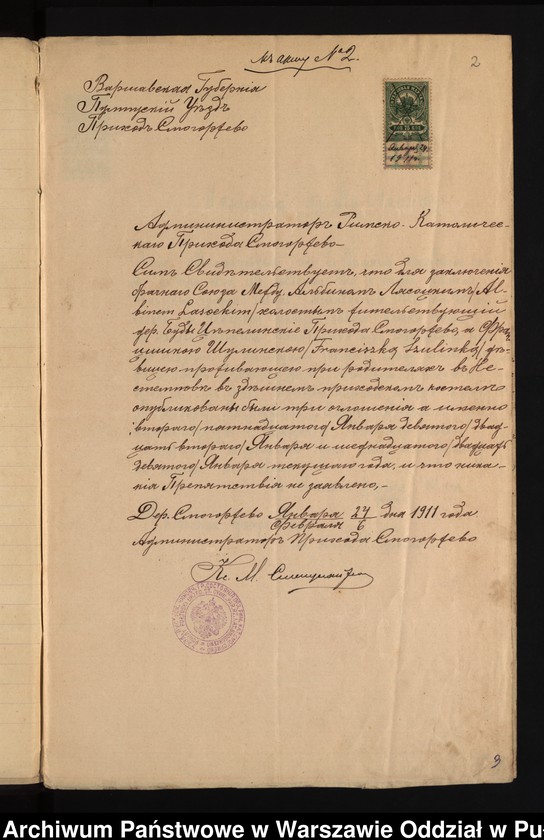 къ акту № 2.
2
Варшавская Губернія
Пултускій Уѣздъ
Приходъ Смогоржево
Администраторъ Римско-Католичес-
каго Прихода Смогоржево
Симъ Свидѣтельствуетъ, что для заключенія
брачнаго Союза Между Альбиномъ Лясоцкимъ /Al-
binem Lasockim/ холостымъ жительствующій
дер. Буды Цѣпелинскіе Прихода Смогоржево, а Фран-
цишкою Шулинскою /Franciszką Szulinką/ дѣ-
вицею проживающею при родителяхъ въ Не-
стемповѣ въ здѣшнемъ приходскомъ костелѣ
опубликованы были три оглашенія а именно
второго /пятнадцатаго/ Января девятого /двад-
цать второго/ Января и шеснадцатого /двадцать
девятого/ Января текущаго года, и что ника-
кія Препятствія не заявлено,-
Дер. Смогоржево Января 24 дня 1911 года
Февраля 6
Администраторъ Прихода Смогоржево
Кс. М.
3
Archiwum Państwowe w Warszawie Oddział w Pu